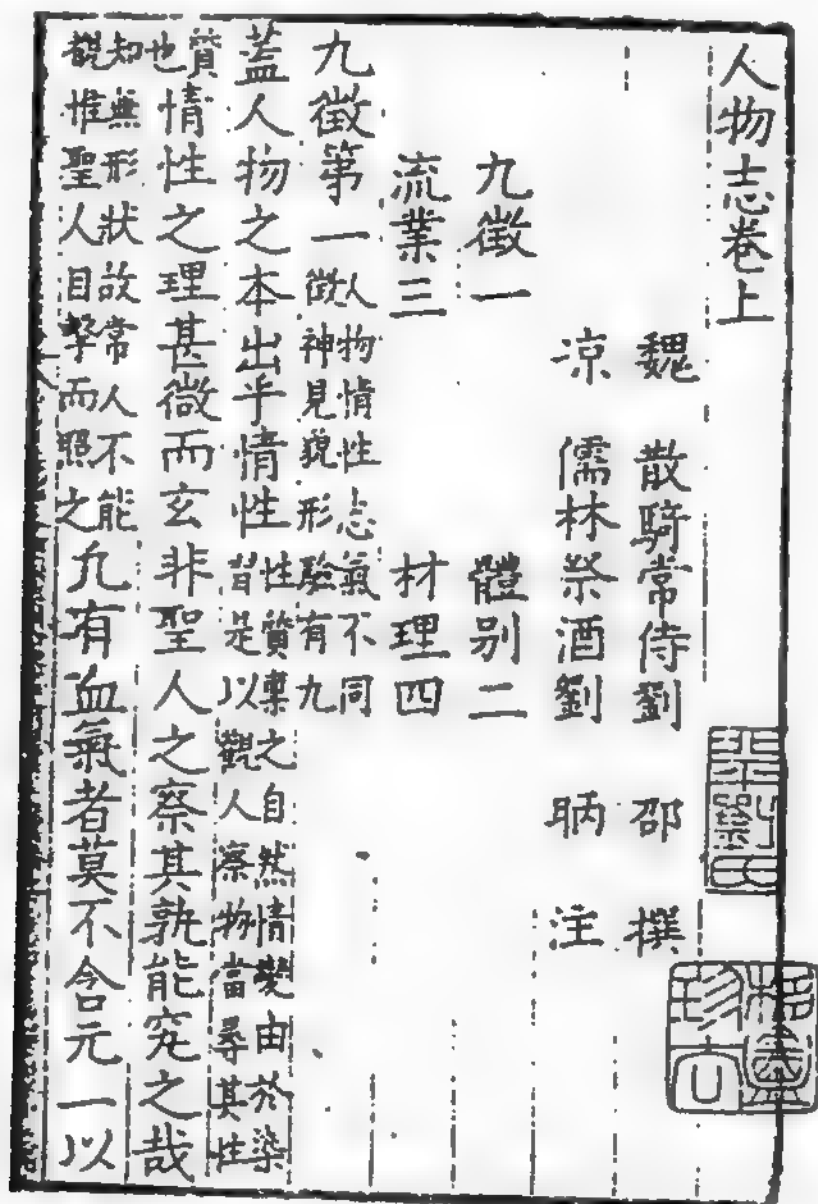 人物志卷上
魏 散騎常侍劉 邵 撰
凉 儒林祭酒劉 昞 注
九徵一 體别二
流業三 材理四
九徵第一人物情性志氣不同
徵神見貌形驗有九
蓋人物之本出乎情性性質稟之自然情變由於染
習是以觀人察物當尋其性
質
也情性之理甚微而玄非聖人之察其孰能究之哉
知無形狀故常人不能
覩惟聖人目擊而照之凢有血氣者莫不含元一以